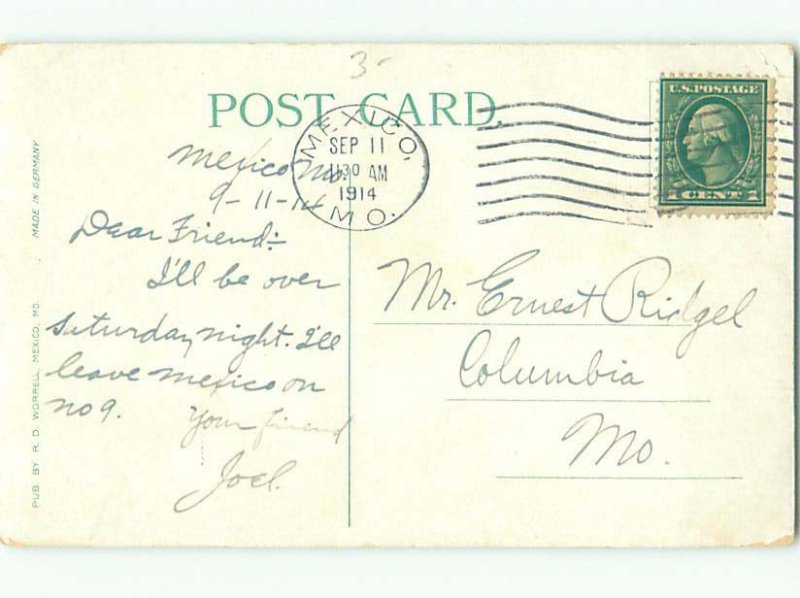 3-
POST CARD.
MEXICO,
SEP 11
1130 AM
1914
MO.
U.S. POSTAGE
1 CENT 1
Mexico Mo.
9-11-14
Dear Friend:-
I'll be over
Saturday night. I'll
leave Mexico on
no 9.
Your friend
Joel.
Mr. Ernest Ridgel
Columbia
Mo.
PUB BY R. D. WORRELL, MEXICO, MO.
MADE IN GERMANY